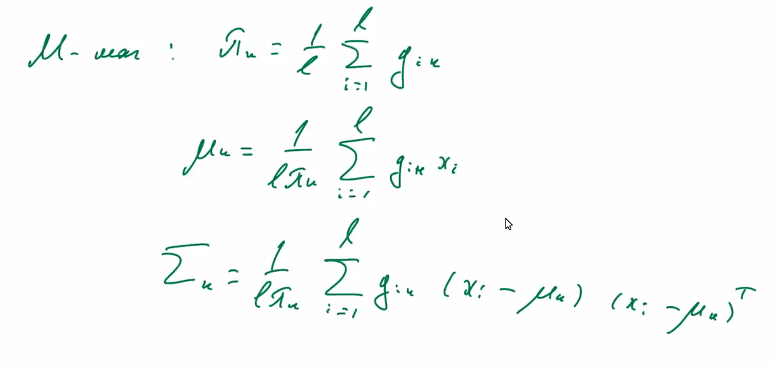 M-шаг : π_k = 1/l ∑_{i=1}^{l} g_{ik}
μ_k = 1/(lπ_k) ∑_{i=1}^{l} g_{ik} x_i
Σ_k = 1/(lπ_k) ∑_{i=1}^{l} g_{ik} (x_i - μ_k) (x_i - μ_k)^T